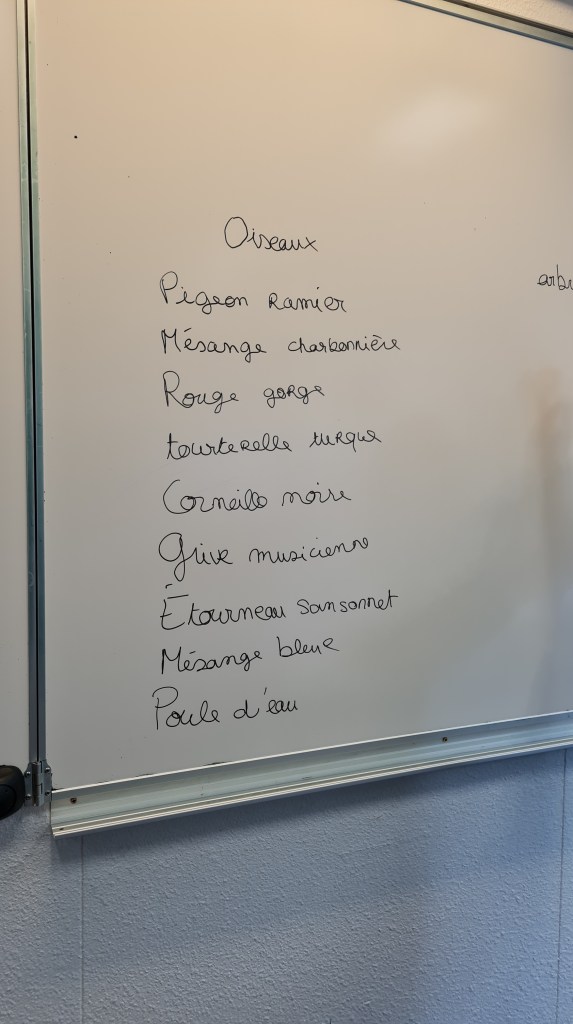 Oiseaux
Pigeon ramier
Mésange charbonnière
Rouge gorge
tourterelle turque
Corneille noire
Grive musicienne
Étourneau sansonnet
Mésange bleue
Poule d'eau